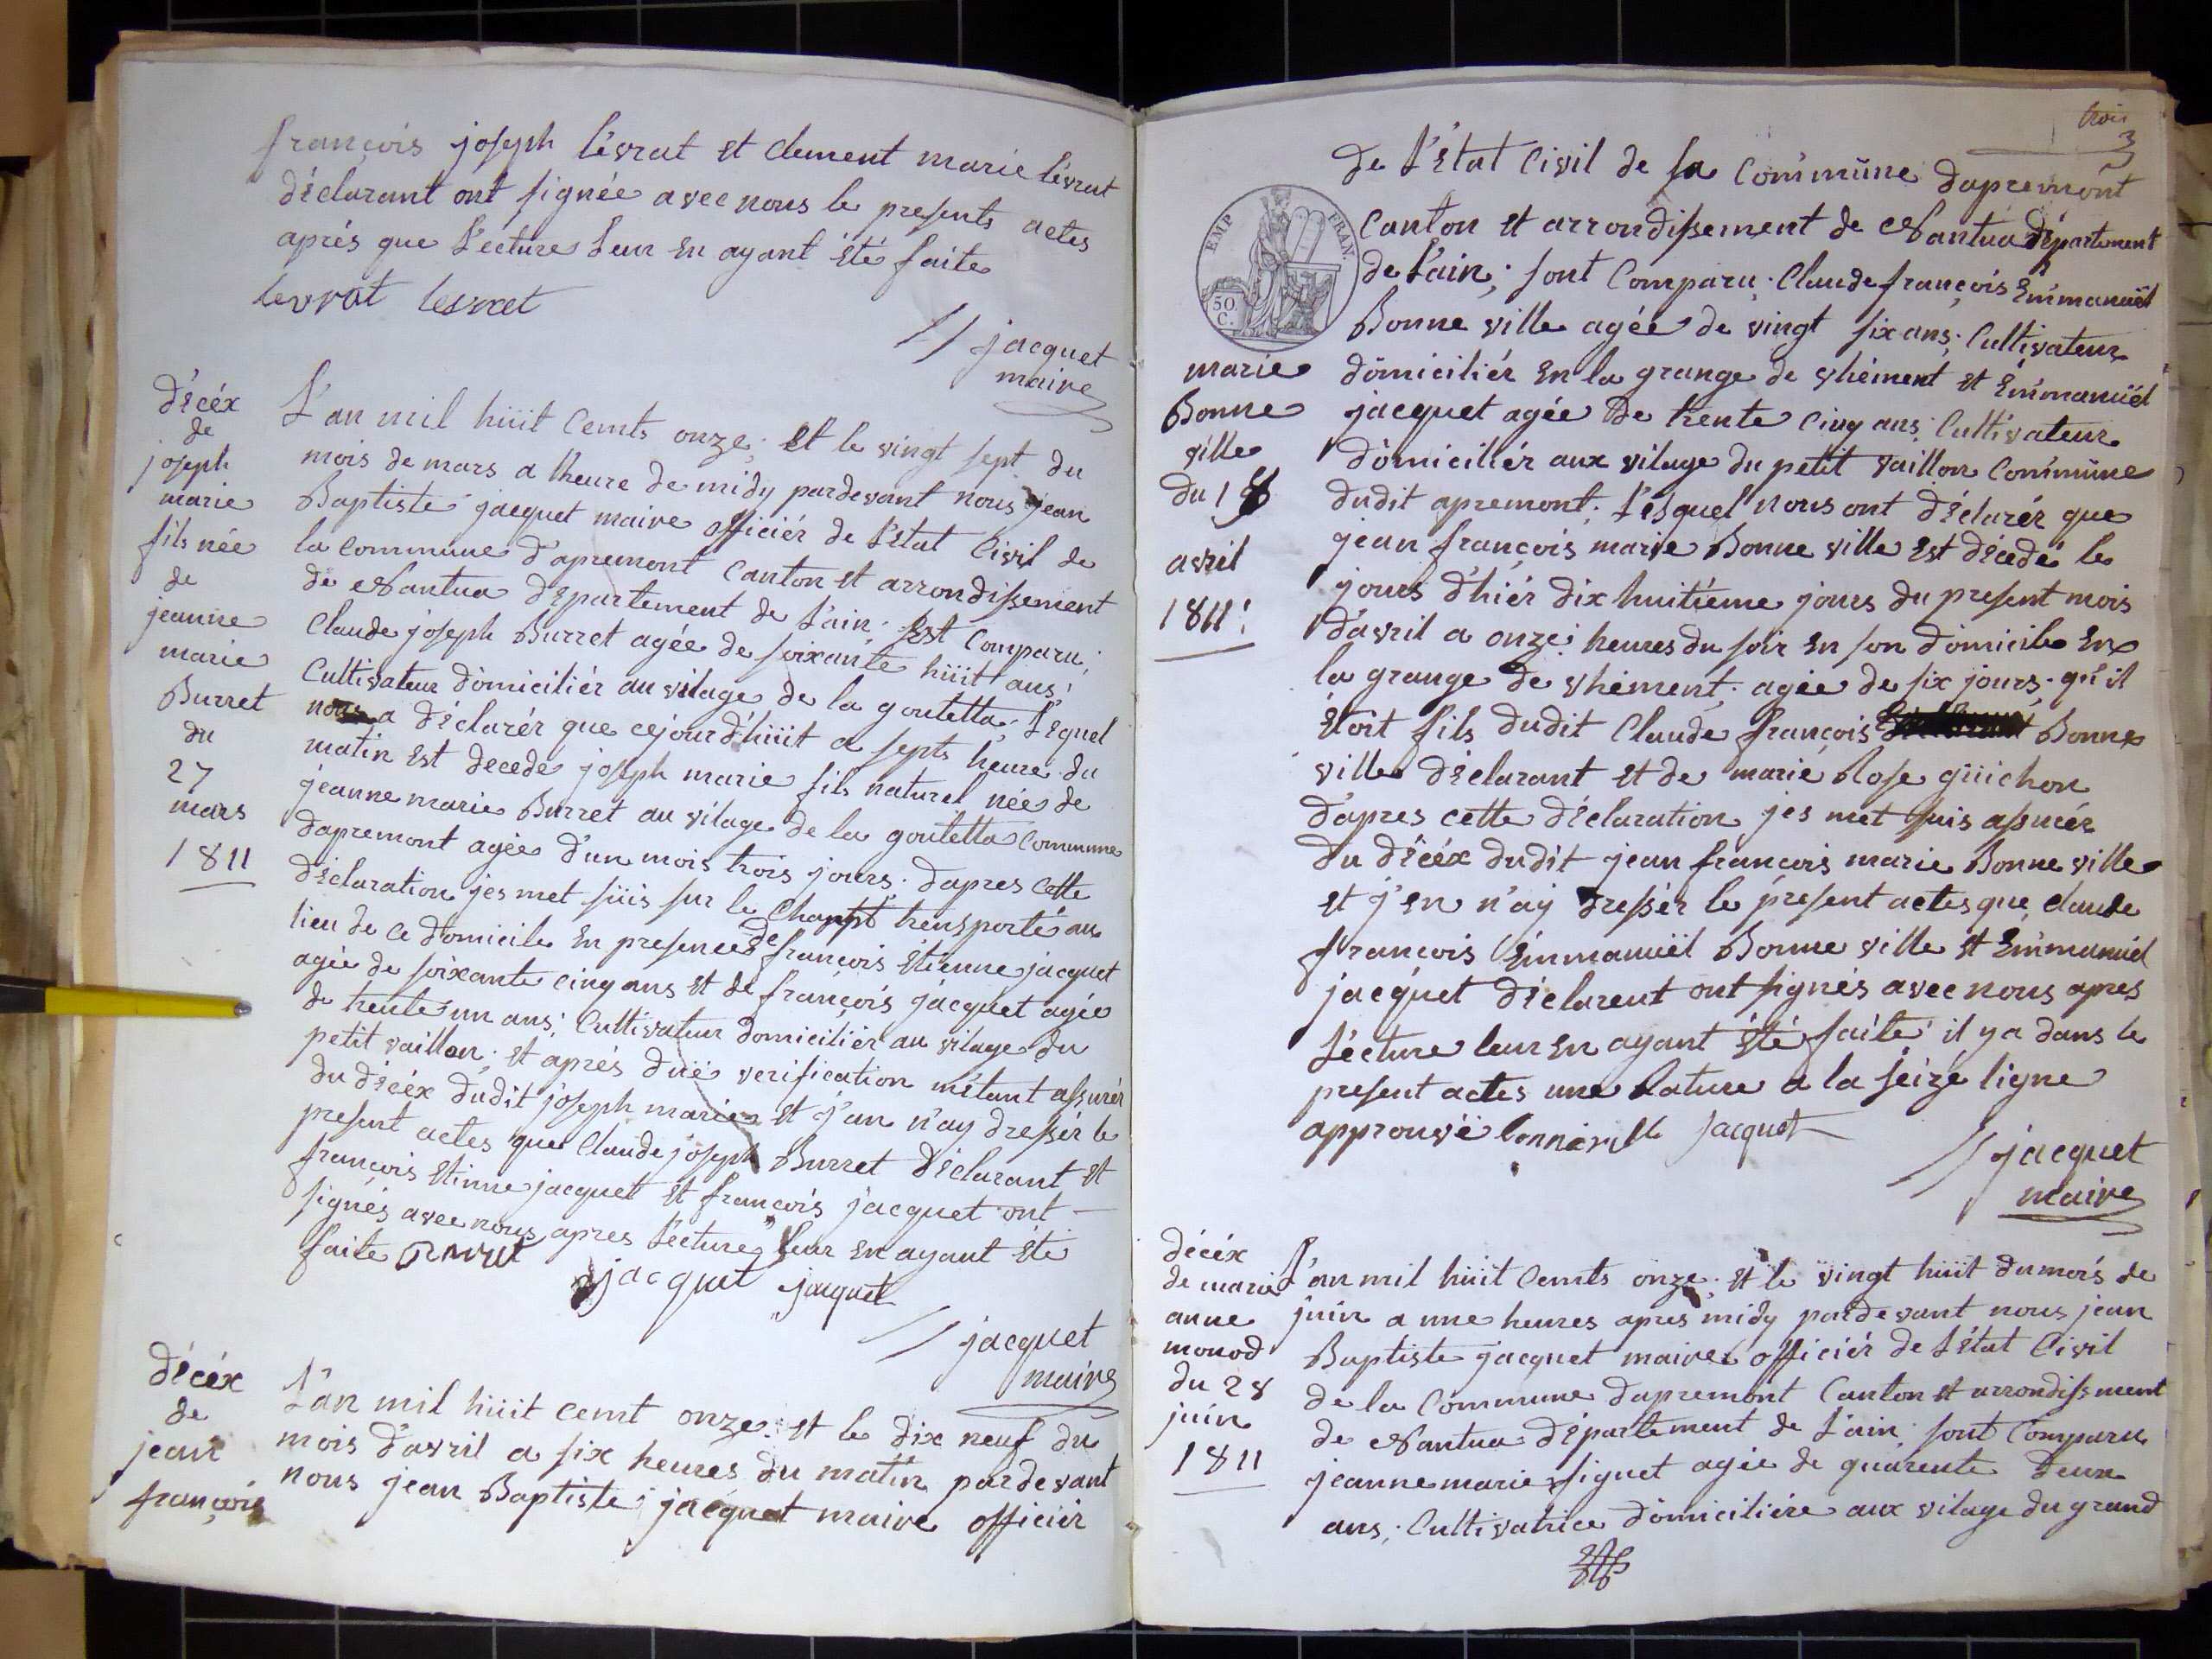 françois joseph lévrat et clement marie lévrat
déclarant ont signée avec nous le presents actes
aprés que Lecture Leur En ayant été faite
levrat levrat
jacquet
maire
décéx
de
joseph
marie
fils née
de
jeanne
marie
Burret
du
27
mars
1811
L'an mil hüit Cemts onze; Et le vingt sept du
mois de mars a lheure de midy pardevant nous jean
Baptiste jacquet maire officiér de L'Etat Civil de
la Commune d'apremont Canton et arrondissement
de Nantua département de L'ain; Est Comparu;
Claude joseph Burret agée de soixante hüit ans;
Cultivateur domiciliér au vilage de la goutetta; Lequel
nous a déclarér que cejourd'hüit a septs heure du
matin est decede joseph marie fils naturel née de
jeanne marie Burret au vilage de la goutetta Commune
dapremont agée d'un mois trois jours; dapres Cette
déclaration jes met süis sur le Champt trensporté au
lieu de ce domicile En presence de françois Etienne jacquet
agée de soixante cinq ans et de françois jacquet agée
de trente un ans; Cultivateur domiciliér au vilage du
petit vaillon; et aprés düe verification m'étant assurér
du décéx dudit joseph marie et j'an n'ay dressér le
present actes que Claude joseph Burret déclarant et
françois Etinne jacquet et françois jacquet ont
signés avec nous apres Lecture Leur En ayant été
faite Burret
jacquet jacquet
jacquet
maire
décéx
de
jean
françois
L'an mil hüit cemt onze; et le dix neuf du
mois d'avril a six heures du matin pardevant
nous jean Baptiste jacquet maire officiér
trois
3
de L'état Civil de la Commüne dapremont
EMP FRAN.
50
C.
Canton et arrondissement de Nantua département
de L'ain; sont Comparu; Claude françois Emmanuël
Bonne ville agée de vingt six ans; Cultivateur
marie
Bonne
ville
du 18
avril
1811
domiciliér En la grange de vhément et Emmanuël
jacquet agée de trente Cinq ans; Cultivateur
domiciliér aux vilage du petit vaillon Commüne
dudit apremont; Lésquel nous ont déclarér que
jean françois marie Bonne ville Est décedé le
jours d'hiér dix huitieme jours du present mois
d'avril a onze heures du soir En son domicile En
la grange de vhément; agée de six jours; qu'il
étoit fils dudit Claude françois Bonne
ville déclarant et de marie Rose güichon
d'apres cette déclaration jes met suis assurér
du décéx dudit jean françois marie Bonne ville
et j'en n'ay dressér le present actes que claude
françois Emmanuël Bonne ville et Emmanuël
jacquet déclarent ont signés avec nous apres
Lecture leur En ayant été faite; il y a dans le
present actes une Rature a la seize ligne
approuvé bonneville jacquet
jacquet
maire
décéx
de marie
anne
monod
du 28
juin
1811
L'an mil hüit Cemts onze; et le vingt hüit du mois de
juin a une heures apres midy pardevant nous jean
Baptiste jacquet maire officiér de L'état Civil
de la Commune dapremont Canton et arrondissment
de Nantua département de L'ain sont Comparu
jeanne marie figuet agée de quarente deux
ans; Cultivatrice domiciliére aux vilage du grand